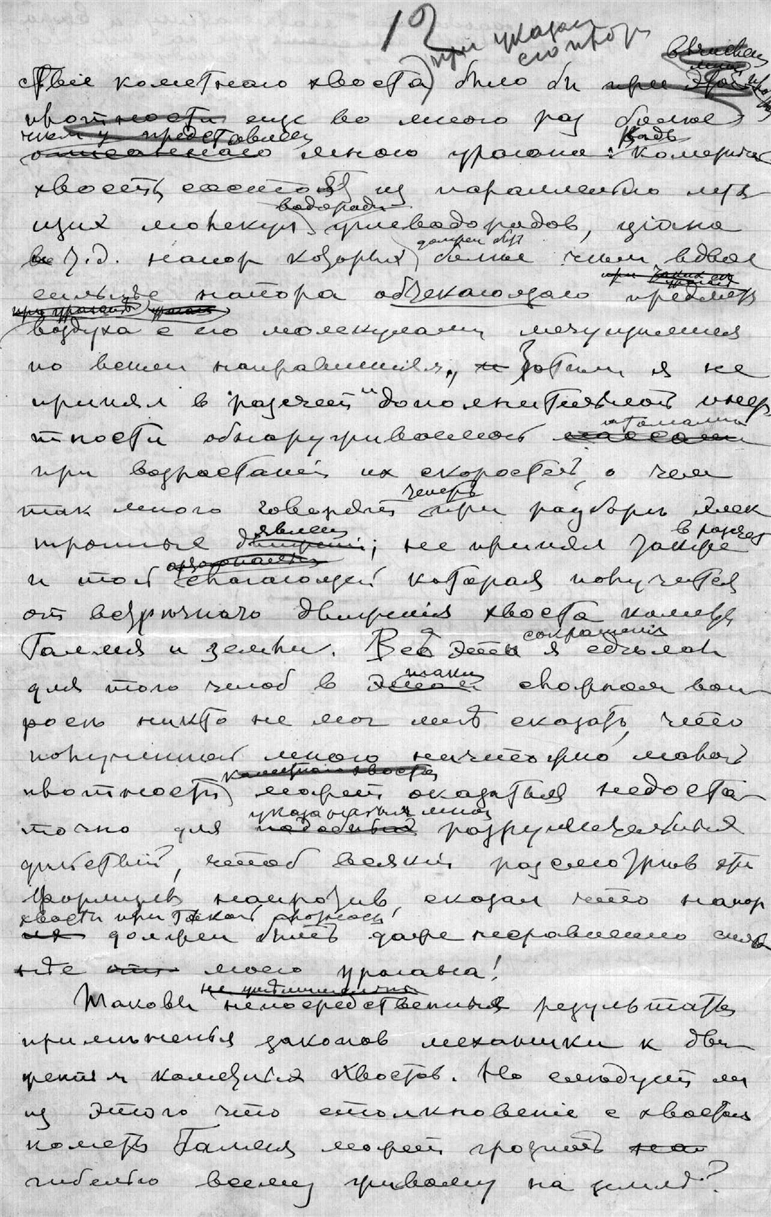 12
при указан
ствіе кометнаго хвоста) было бы при этой
плотности еще во много раз более
чем у представлен
описаннаго мною урагана: Ведь кометный
хвост состоя из параллельно летя
щих молекул водорода углеводородов, циана
и т.д. напор которых должен быт более чем вдвое
сильнее напора обтекающаго предметы
воздуха с его молекулами мечущимися
по всем направлениям, Затем я не
принял в "разсчет" дополнительной инер
тности обнаруживаемой атомами
при возрастаніи их скоростей, о чем
так много говорят теперь при разборе элек
тронных явлен; не принял также в разчет
и той слагающей которая получится
от встречного движения хвоста кометы
Галлея и земли. Все эти сокращенія я сделал
для того чтоб в таком спорном воп
росе никто не мог мне сказать, что
полученной мною ничтожно малой
плотности кометного хвоста может оказаться недоста
точно для указанных мной разрушительных
действий, чтоб всякий разсмотрев эти
формулы напротив, сказал что напор
хвоста при такой скорости
должен быть даже несравненно силь
нее моего урагана!
Таковы непосредственные результаты
примененья законов механики к дви
женіям кометных хвостов. Но следует ли
из этого что столкновение с хвостом
кометы Галлея может грозить
гибелью всему живому на земле?